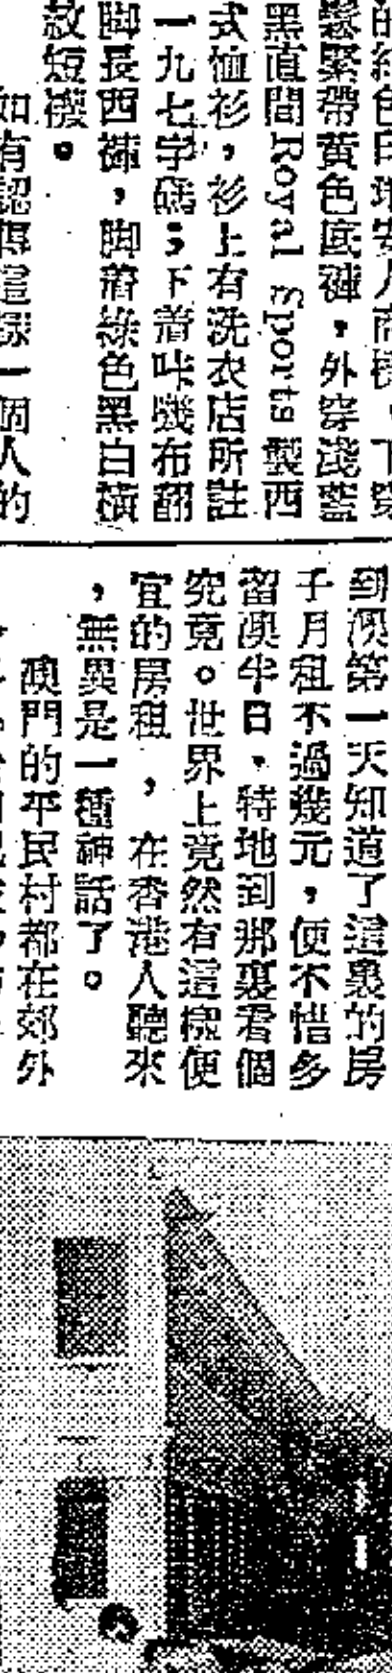 鬆緊帶黃色底褲，外穿淺藍
黑直間Royal Sports製西
式恤衫，衫上有洗衣店所註
一九七字碼；下着咔嘰布翻
脚長西褲，脚着綠色黑白橫
紋短襪。
如有認
一個人的
到澳第一天知道了這裏的房
子月租不過幾元，便不惜多
留澳半日，特地到那裏看個
究竟。世界上竟然有這樣便
宜的房租，在香港人聽來
，無異是一種神話了。
澳門的平民村都在郊外